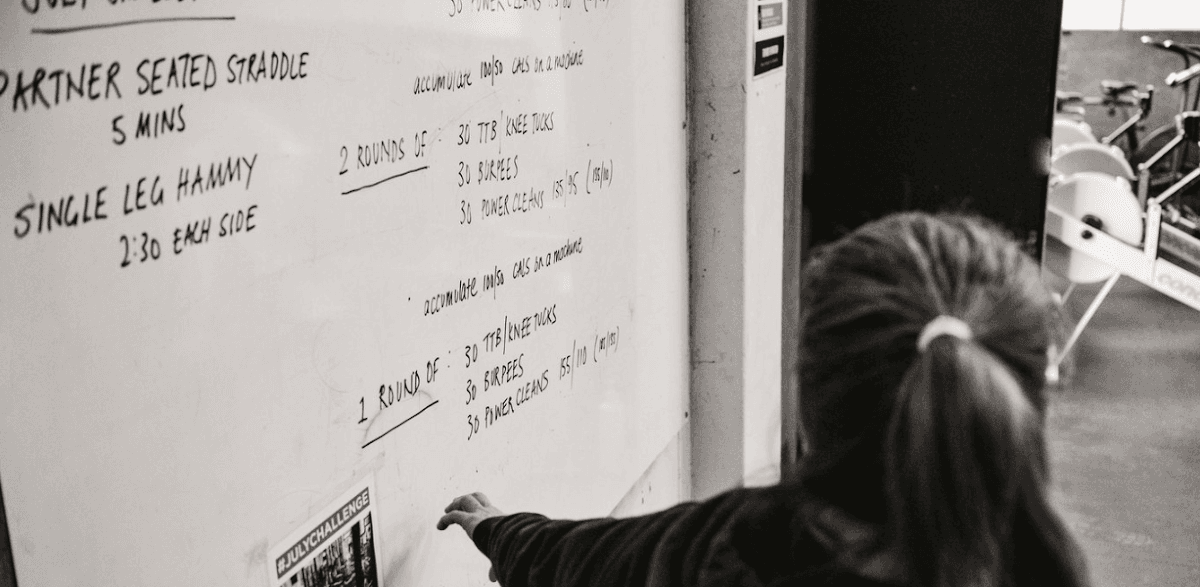 PARTNER SEATED STRADDLE
5 MINS
SINGLE LEG HAMMY
2:30 EACH SIDE
30 POWER CLEANS
accumulate 100/50 CALS on a machine
2 ROUNDS OF: 30 TTB/KNEE TUCKS
30 BURPEES
30 POWER CLEANS 135/95
accumulate 100/50 CALS on a machine
1 ROUND OF: 30 TTB/KNEE TUCKS
30 BURPEES
30 POWER CLEANS 155/110
#JULYCHALLENGE